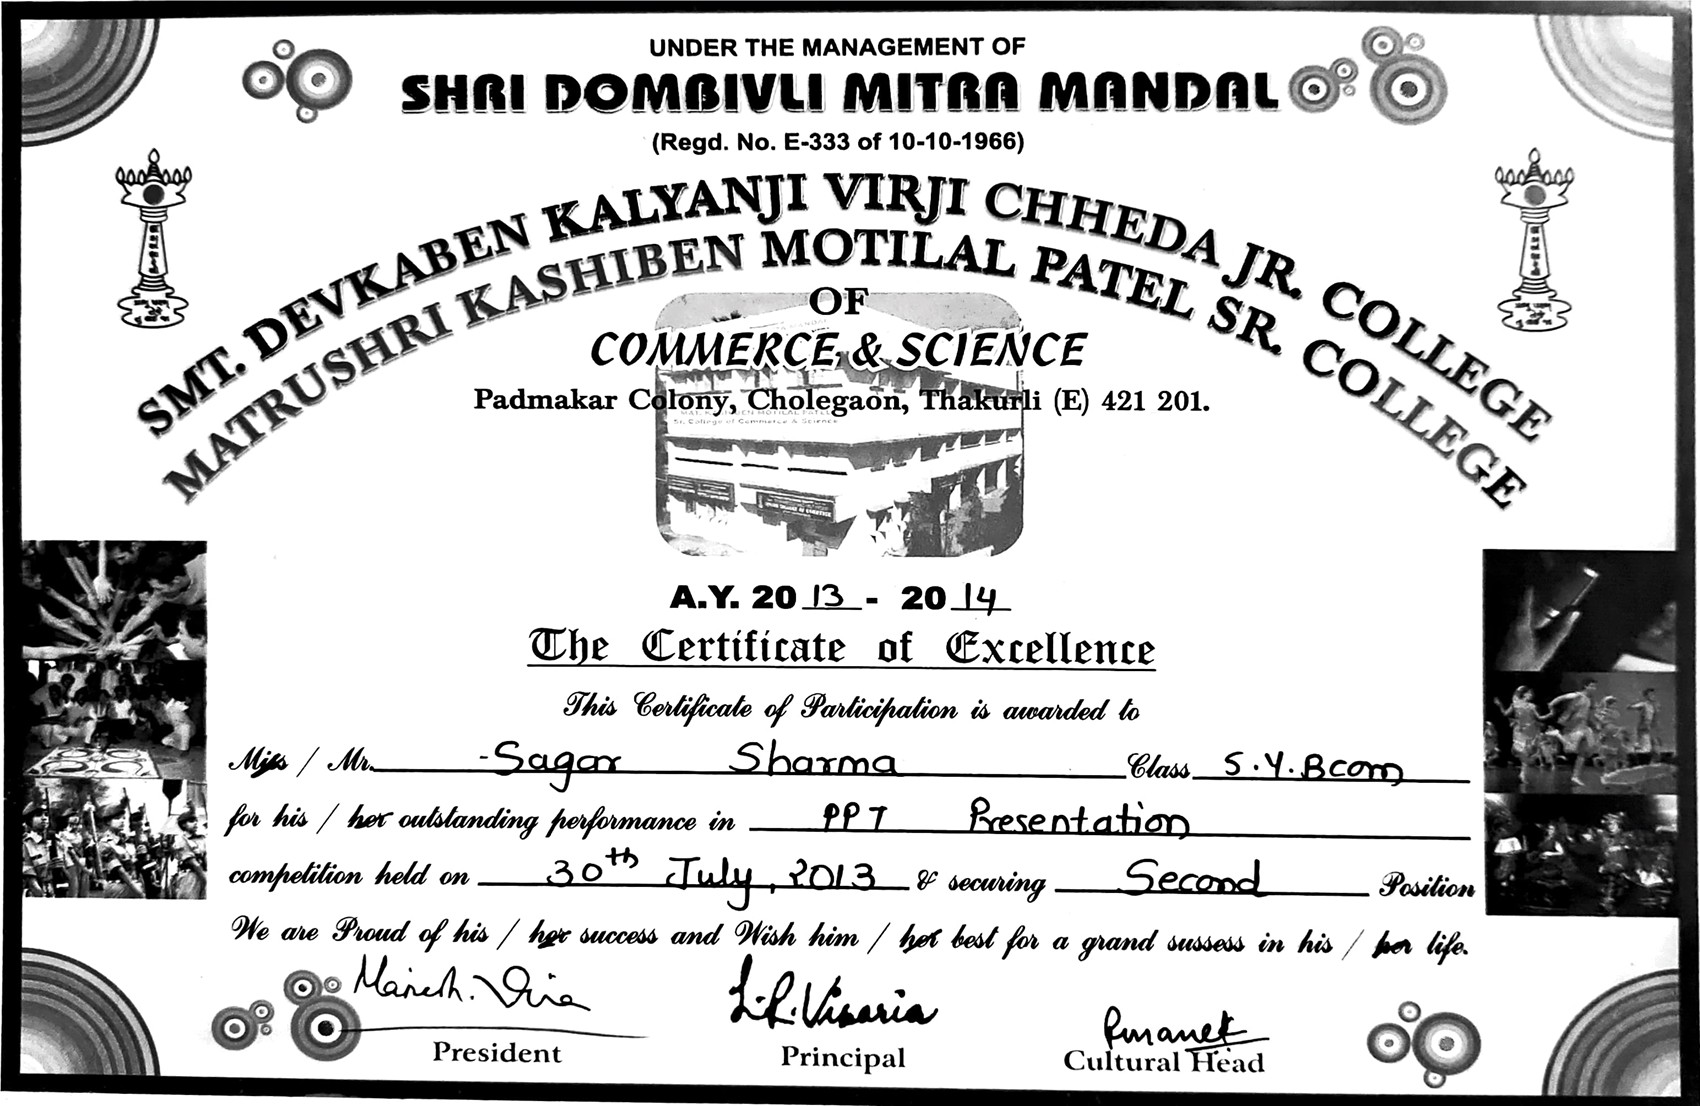 UNDER THE MANAGEMENT OF
SHRI DOMBIVLI MITRA MANDAL
(Regd. No. E-333 of 10-10-1966)
SMT. DEVKABEN KALYANJI VIRJI CHHEDA JR. COLLEGE
MATRUSHRI KASHIBEN MOTILAL PATEL SR. COLLEGE
OF
COMMERCE & SCIENCE
Padmakar Colony, Cholegaon, Thakurli (E) 421 201.
Sr. College of Commerce & Science
A.Y. 2013 - 2014
The Certificate of Excellence
This Certificate of Participation is awarded to
Miss / Mr. Sagar Sharma Class S.Y.Bcom
for his / her outstanding performance in PPT Presentation
competition held on 30th July, 2013 & securing Second Position
We are Proud of his / her success and Wish him / her best for a grand sussess in his / her life.
L.R. Visaria
President Principal Cultural Head